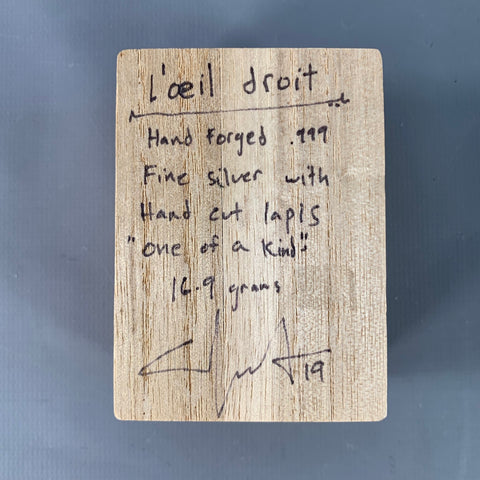 l'œil droit
Hand Forged .999
Fine silver with
Hand cut lapis
"one of a Kind"
16.9 grams
19